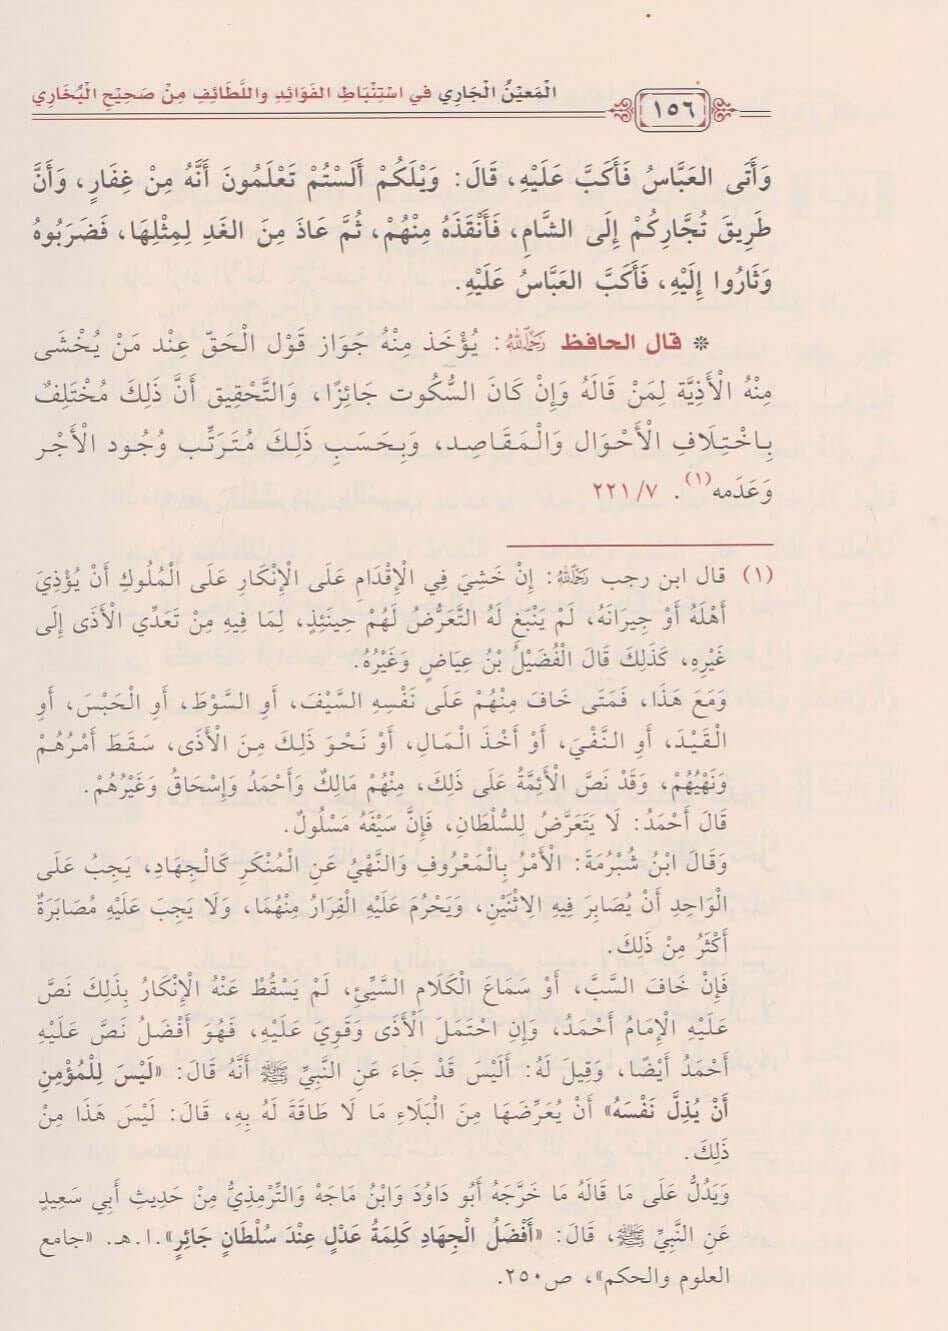 الْمَعِيْنُ الْجَارِي في اسْتِنْبَاطِ الفَوَائِدِ واللَّطَائِفِ مِنْ صَحِيْحِ الْبُخَارِي
١٥٦
وَأَتَى العَبَّاسُ فَأَكَبَّ عَلَيْهِ، قَالَ: وَيْلَكُمْ أَلَسْتُمْ تَعْلَمُونَ أَنَّهُ مِنْ غِفَارٍ، وَأَنَّ
طَرِيقَ تُجَّارِكُمْ إِلَى الشَّامِ، فَأَنْقَذَهُ مِنْهُمْ، ثُمَّ عَاذَ مِنَ الغَدِ لِمِثْلِهَا، فَضَرَبُوهُ
وَثَارُوا إِلَيْهِ، فَأَكَبَّ العَبَّاسُ عَلَيْهِ.
❊ قال الحافظ رَحِمَهُ اللَّهُ: يُؤْخَذ مِنْهُ جَوَاز قَوْل الْحَقّ عِنْد مَنْ يُخْشَى
مِنْهُ الْأَذِيَّة لِمَنْ قَالَهُ وَإِنْ كَانَ السُّكُوت جَائِزًا، وَالتَّحْقِيق أَنَّ ذَلِكَ مُخْتَلِفٌ
بِاخْتِلَافِ الْأَحْوَال وَالْمَقَاصِد، وَبِحَسَبِ ذَلِكَ مُتَرَتِّب وُجُود الْأَجْر
وَعَدَمه(١). ٢٢١/٧
(١) قال ابن رجب رَحِمَهُ اللَّهُ: إِنْ خَشِيَ فِي الْإِقْدَامِ عَلَى الْإِنْكَارِ عَلَى الْمُلُوكِ أَنْ يُؤْذِيَ
أَهْلَهُ أَوْ جِيرَانَهُ، لَمْ يَنْبَغِ لَهُ التَّعَرُّضُ لَهُمْ حِينَئِذٍ، لِمَا فِيهِ مِنْ تَعَدِّي الْأَذَى إِلَى
غَيْرِهِ، كَذَلِكَ قَالَ الْفُضَيْلُ بْنُ عِيَاضٍ وَغَيْرُهُ.
وَمَعَ هَذَا، فَمَتَى خَافَ مِنْهُمْ عَلَى نَفْسِهِ السَّيْفَ، أَوِ السَّوْطَ، أَوِ الْحَبْسَ، أَوِ
الْقَيْدَ، أَوِ النَّفْيَ، أَوْ أَخْذَ الْمَالِ، أَوْ نَحْوَ ذَلِكَ مِنَ الْأَذَى، سَقَطَ أَمْرُهُمْ
وَنَهْيُهُمْ، وَقَدْ نَصَّ الْأَئِمَّةُ عَلَى ذَلِكَ، مِنْهُمْ مَالِكٌ وَأَحْمَدُ وَإِسْحَاقُ وَغَيْرُهُمْ.
قَالَ أَحْمَدُ: لَا يَتَعَرَّضُ لِلسُّلْطَانِ، فَإِنَّ سَيْفَهُ مَسْلُولٌ.
وَقَالَ ابْنُ شُبْرُمَةَ: الْأَمْرُ بِالْمَعْرُوفِ وَالنَّهْيُ عَنِ الْمُنْكَرِ كَالْجِهَادِ، يَجِبُ عَلَى
الْوَاحِدِ أَنْ يُصَابِرَ فِيهِ الِاثْنَيْنِ، وَيَحْرُمَ عَلَيْهِ الْفِرَارُ مِنْهُمَا، وَلَا يَجِبَ عَلَيْهِ مُصَابَرَةُ
أَكْثَرُ مِنْ ذَلِكَ.
فَإِنْ خَافَ السَّبَّ، أَوْ سَمَاعَ الْكَلَامِ السَّيِّئِ، لَمْ يَسْقُطْ عَنْهُ الْإِنْكَارُ بِذَلِكَ نَصَّ
عَلَيْهِ الْإِمَامُ أَحْمَدُ، وَإِنِ احْتَمَلَ الْأَذَى وَقَوِيَ عَلَيْهِ، فَهُوَ أَفْضَلُ نَصَّ عَلَيْهِ
أَحْمَدُ أَيْضًا، وَقِيلَ لَهُ: أَلَيْسَ قَدْ جَاءَ عَنِ النَّبِيِّ ﷺ أَنَّهُ قَالَ: «لَيْسَ لِلْمُؤْمِنِ
أَنْ يُذِلَّ نَفْسَهُ» أَنْ يُعَرِّضَهَا مِنَ الْبَلَاءِ مَا لَا طَاقَةَ لَهُ بِهِ، قَالَ: لَيْسَ هَذَا مِنْ
ذَلِكَ.
وَيَدُلُّ عَلَى مَا قَالَهُ مَا خَرَّجَهُ أَبُو دَاوُدَ وَابْنُ مَاجَهْ وَالتِّرْمِذِيُّ مِنْ حَدِيثِ أَبِي سَعِيدٍ
عَنِ النَّبِيِّ ﷺ، قَالَ: «أَفْضَلُ الْجِهَادِ كَلِمَةُ عَدْلٍ عِنْدَ سُلْطَانٍ جَائِرٍ».ا.هـ. «جامع
العلوم والحكم»، ص٢٥٠.